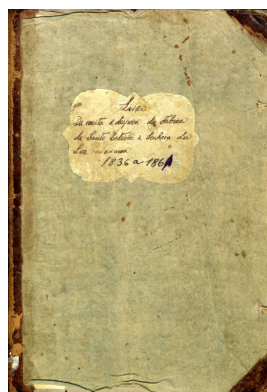 Livro
Da receita e despesa da Fabrica
de Santo Estevão e Senhora da
Luz
1836 a 1861